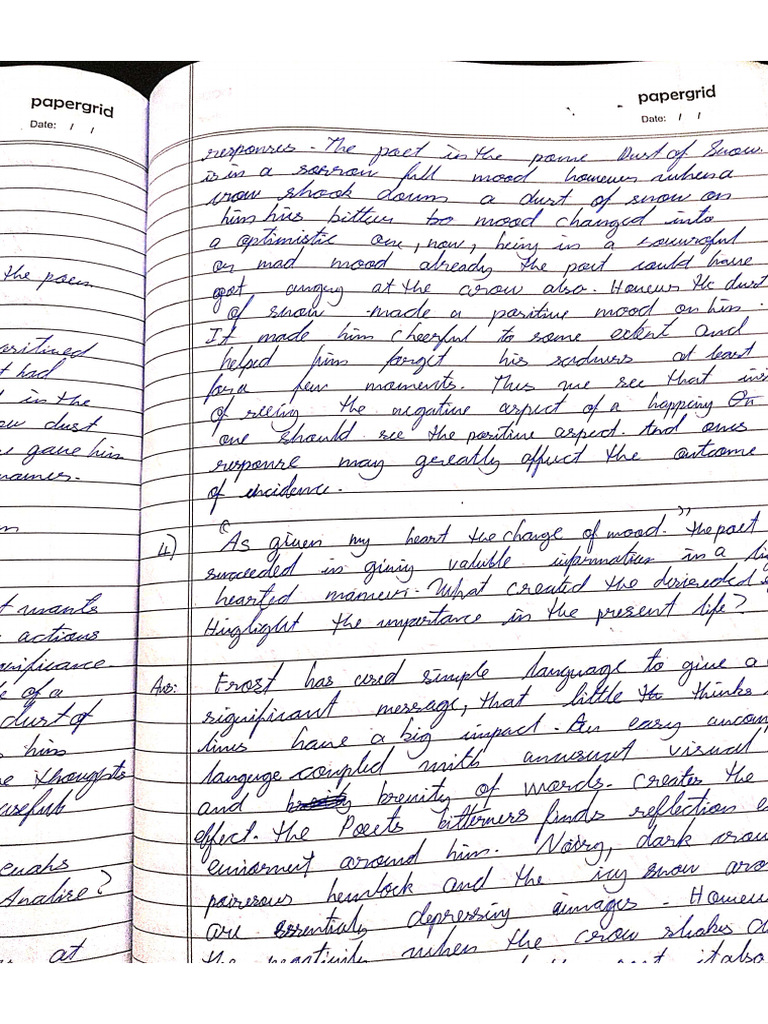 papergrid
Date: / /
the poem
had
in the
dust
gave him
manner.
wants
actions
significance.
of a
dust of
him
thoughts
useful
Analise?
at
papergrid
Date: / /
responses. The poet in the pome Dust of Snow
is in a sorrow full mood however when a
crow shook down a dust of snow on
him his bitter so mood changed into
a optimistic one, now, being in a sourroful
or mad mood already the poet could have
got angry at the crow also. However the dust
of snow made a positive mood on him.
It made him cheerful to some extent and
helped him forget his sadness at least
for a few moments. Thus we see that
of seeing the negative aspect of a happing
one should see the positive aspect And ones
response may greatly affect the outcome
of incidence.
4) "As given my heart the change of mood." the poet
succeeded in giving valuble information in a
hearted manner. What created the desiereded
Highlight the importance in the present life?
Ans: Frost has used simple language to give a
significant message, that little thinks
lines have a big impact. An easy
language coupled with unusual visual
and brevity of words. creates the
effect. the Poeets bitterness finds reflection
around him. Noisy, dark
hemlock and the icy snow
are essentialy depressing images.
the negativity when the crow shakes
it also